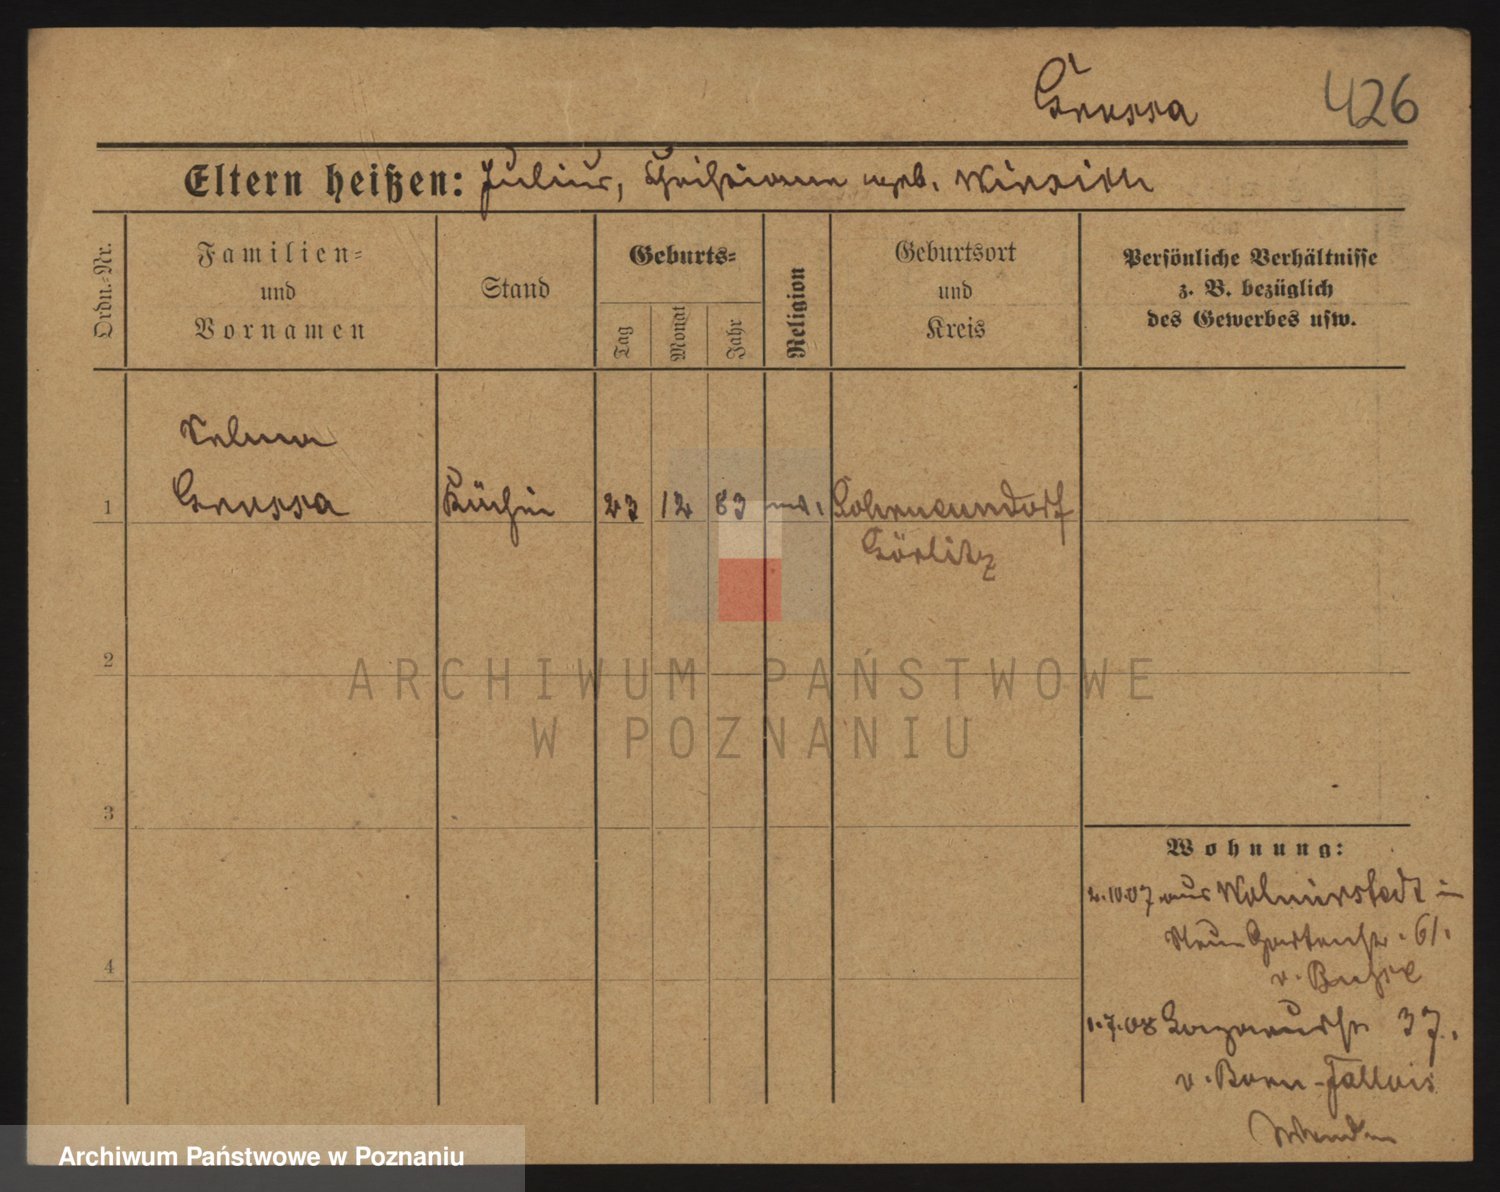 Grussa
426
Eltern heißen: Julius, Christiane geb. Winsich
Ordn.-Nr.
Familien-
und
Vornamen
Stand
Geburts-
Tag
Monat
Jahr
Religion
Geburtsort
und
Kreis
Persönliche Verhältnisse
z. B. bezüglich
des Gewerbes usw.
Selma
1 Grussa Köchin 23 12 83 ev.
Görlitz
2
ARCHIWUM PAŃSTWOWE
W POZNANIU
3
4
Wohnung:
2.10.07 aus Wolmirstedt in
Neue Gartenstr. 61.
v.
1.7.08 37.
v. Born-Fallois
Wenden
Archiwum Państwowe w Poznaniu